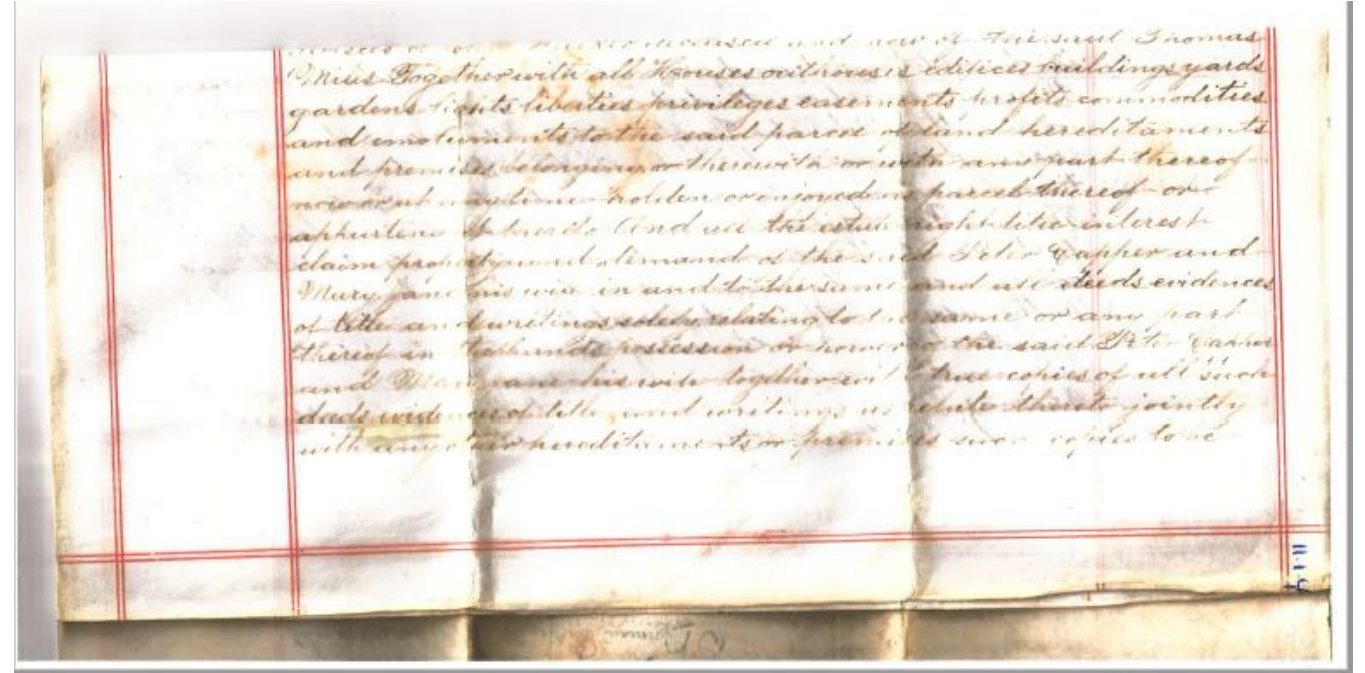 deceased and now of the said Thomas
Together with all Houses outhouses edifices buildings yards
gardens lights liberties privileges easements profits commodities
and emoluments to the said parcel of land hereditaments
and premises belonging or therewith or with any part thereof
now or at any time holden or enjoyed parcel thereof or
appurtenant thereto And all the estate right title interest
claim property and demand of the said Peter Capper and
Mary Jane his wife in and to the same and all deeds evidences
of title and writings solely relating to the same or any part
thereof in the hands possession or power of the said Peter Capper
and Mary Jane his wife together with true copies of all such
deeds evidences of title and writings as relate thereto jointly
with any other hereditaments or premises such copies to be